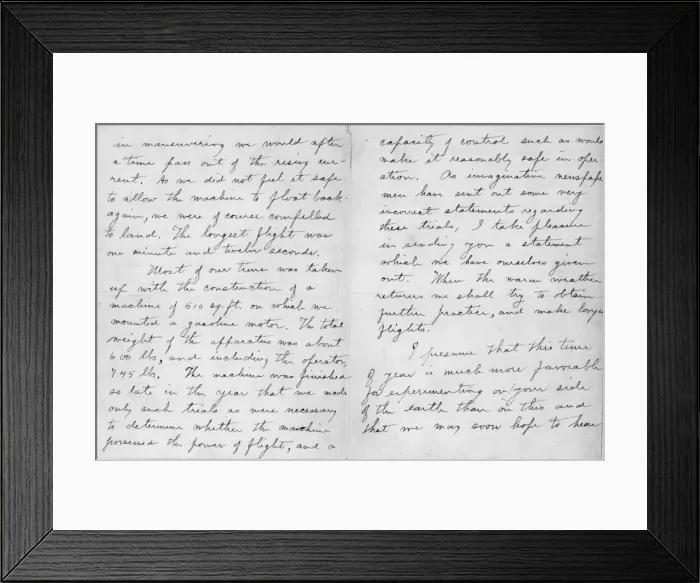 in maneuvering we would after
a time pass out of the rising cur-
rent. As we did not feel it safe
to allow the machine to float back-
again, we were of course compelled
to land. The longest flight was
one minute and twelve seconds.
Most of our time was taken
up with the construction of a
machine of 510 sq. ft. on which we
mounted a gasoline motor. The total
weight of the apparatus was about
600 lbs, and including the operator,
745 lbs. The machine was finished
so late in the year that we made
only such trials as were necessary
to determine whether the machine
possessed the power of flight, and a
capacity of control such as would
make it reasonably safe in oper-
ation. As imaginative newspape
men have sent out some very
incorrect statements regarding
these trials, I take pleasure
in sending you a statement
which we have ourselves given
out. When the warm weather
returns we shall try to obtain
further practice, and make longer
flights.
I presume that this time
of year is much more favorable
for experimenting on your side
of the earth than on this and
that we may soon hope to hear